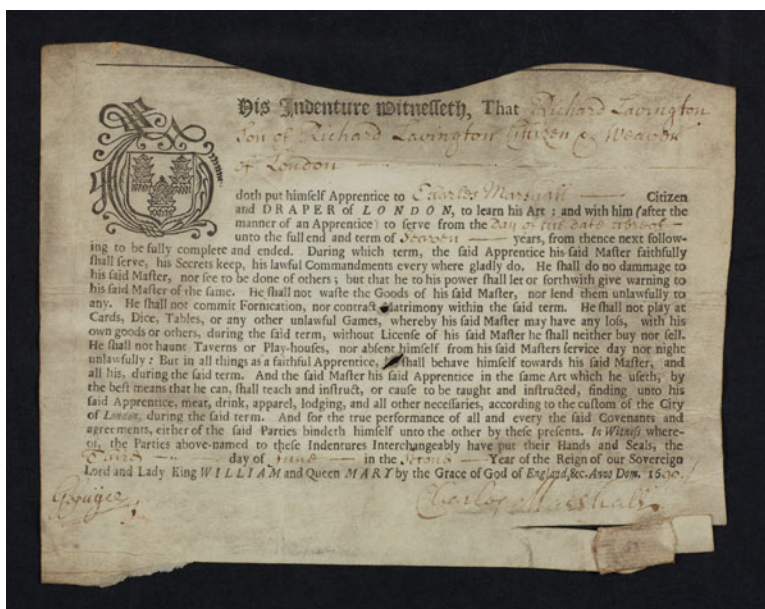 His Indenture Witnesseth, That Richard Lavington
Son of Richard Lavington Citizen & Weaver
of London
doth put himself Apprentice to Charles Marshall Citizen
and DRAPER of LONDON, to learn his Art : and with him (after the
manner of an Apprentice) to serve from the day of the date hereof
unto the full end and term of Seaven years, from thence next follow-
ing to be fully complete and ended. During which term, the said Apprentice his said Master faithfully
shall serve, his Secrets keep, his lawful Commandments every where gladly do. He shall do no damage to
his said Master, nor see to be done of others ; but that he to his power shall let or forthwith give warning to
his said Master of the same. He shall not waste the Goods of his said Master, nor lend them unlawfully to
any. He shall not commit Fornication, nor contract Matrimony within the said term. He shall not play at
Cards, Dice, Tables, or any other unlawful Games, whereby his said Master may have any loss, with his
own goods or others, during the said term, without License of his said Master he shall neither buy nor sell.
He shall not haunt Taverns or Play-houses, nor absent himself from his said Masters service day nor night
unlawfully : But in all things as a faithful Apprentice, he shall behave himself towards his said Master, and
all his, during the said term. And the said Master his said Apprentice in the same Art which he useth, by
the best means that he can, shall teach and instruct, or cause to be taught and instructed, finding unto his
said Apprentice, meat, drink, apparel, lodging, and all other necessaries, according to the custom of the City
of London, during the said term. And for the true performance of all and every the said Covenants and
agreements, either of the said Parties bindeth himself unto the other by these presents. In Witness where-
of, the Parties above-named to these Indentures Interchangeably have put their Hands and Seals, the
day of June in the Second Year of the Reign of our Sovereign
Lord and Lady King WILLIAM and Queen MARY by the Grace of God of England, &c. Anno Dom. 1690
Charles Marshall